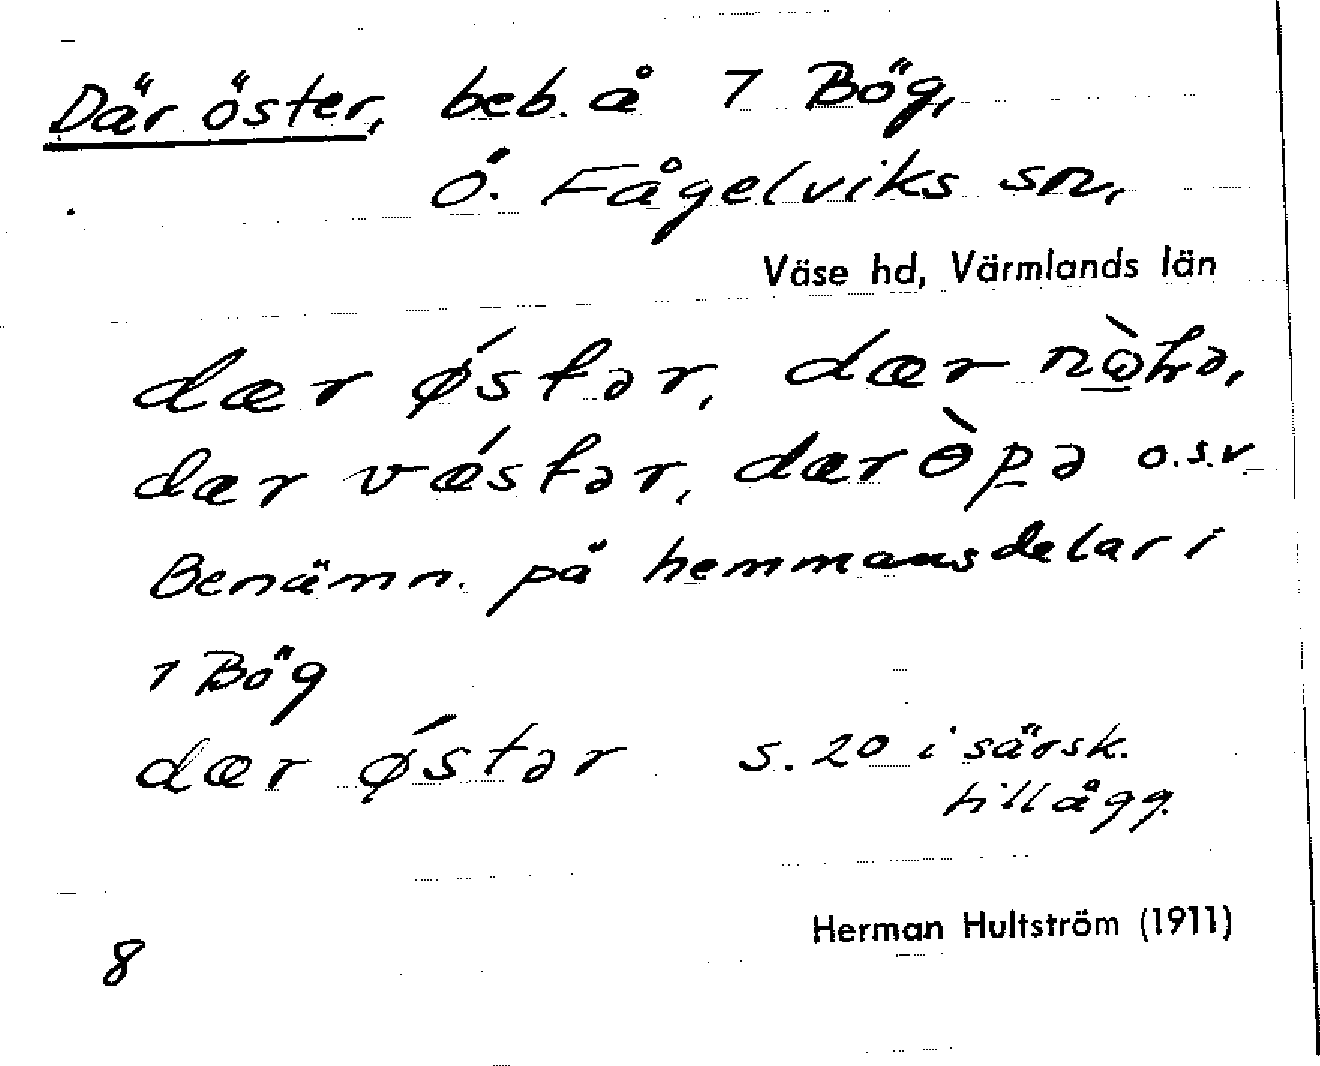 Där öster, beb. å 1 Bög,
Ö. Fågelviks sn,
Väse hd, Värmlands län
dær ǿstər, dær
dær vǽstər, dær o.s.v.
Benämn. på hemmansdelar i
1 Bög
dær ǿstər s. 20 i särsk.
tillägg.
Herman Hultström (1911)
8